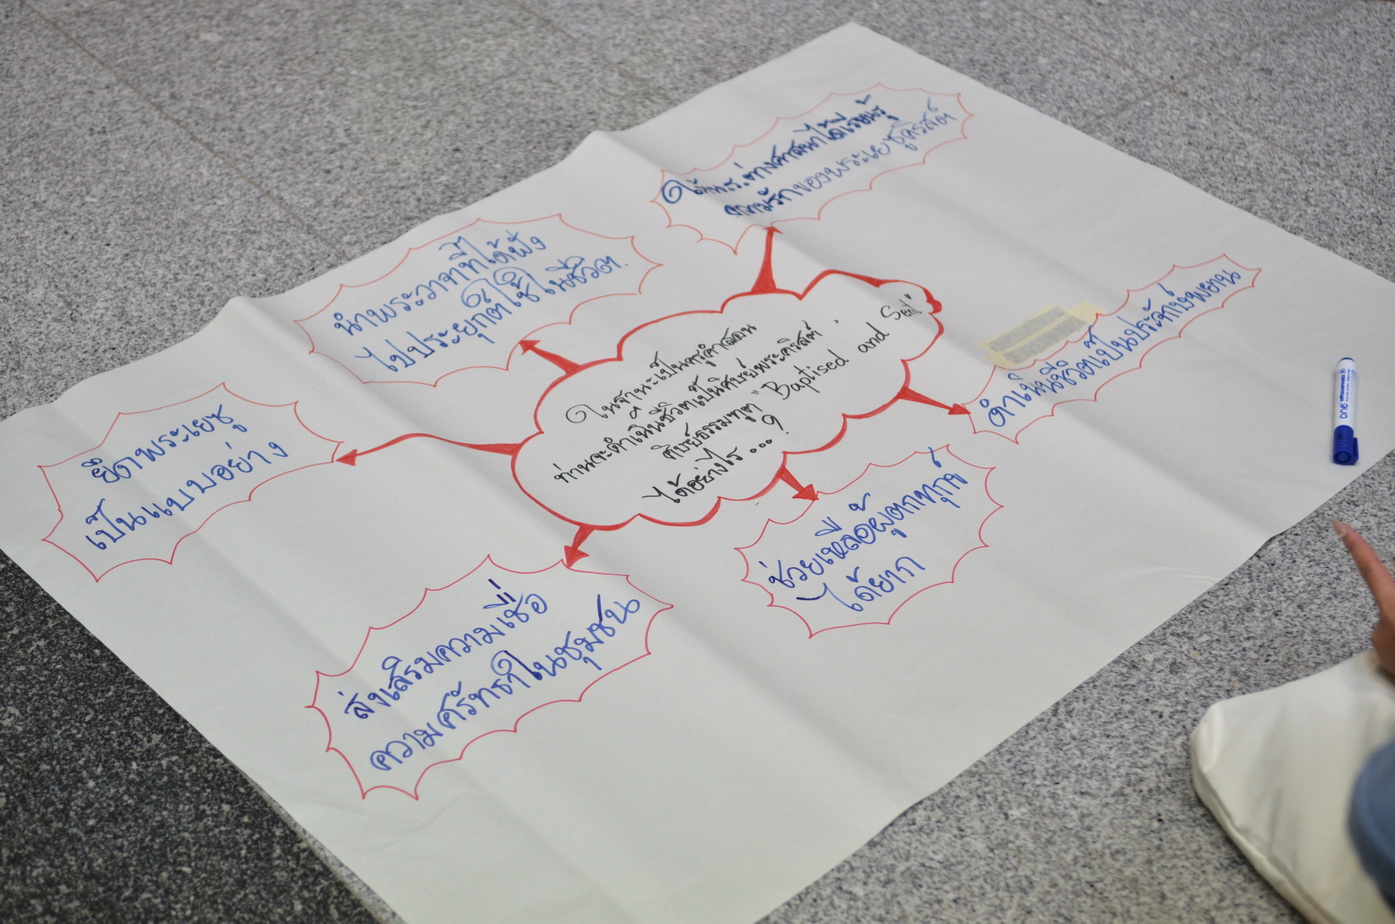 ในฐานะเป็นครูคำสอน
ท่านจะดำเนินชีวิตเป็นศิษย์พระคริสต์
ศิษย์ธรรมทูต "Baptised and Sent"
ได้อย่างไร...?
นำพระวาจาที่ได้ฟัง
ไปประยุกต์ใช้ในชีวิต
ได้เรียนรู้
ความรักของพระเยซูคริสต์
ดำเนินชีวิตเป็นประจักษ์พยาน
ช่วยเหลือผู้ตกทุกข์
ได้ยาก
ส่งเสริมความเชื่อ
ความศรัทธาในชุมชน
ยึดพระเยซู
เป็นแบบอย่าง
one